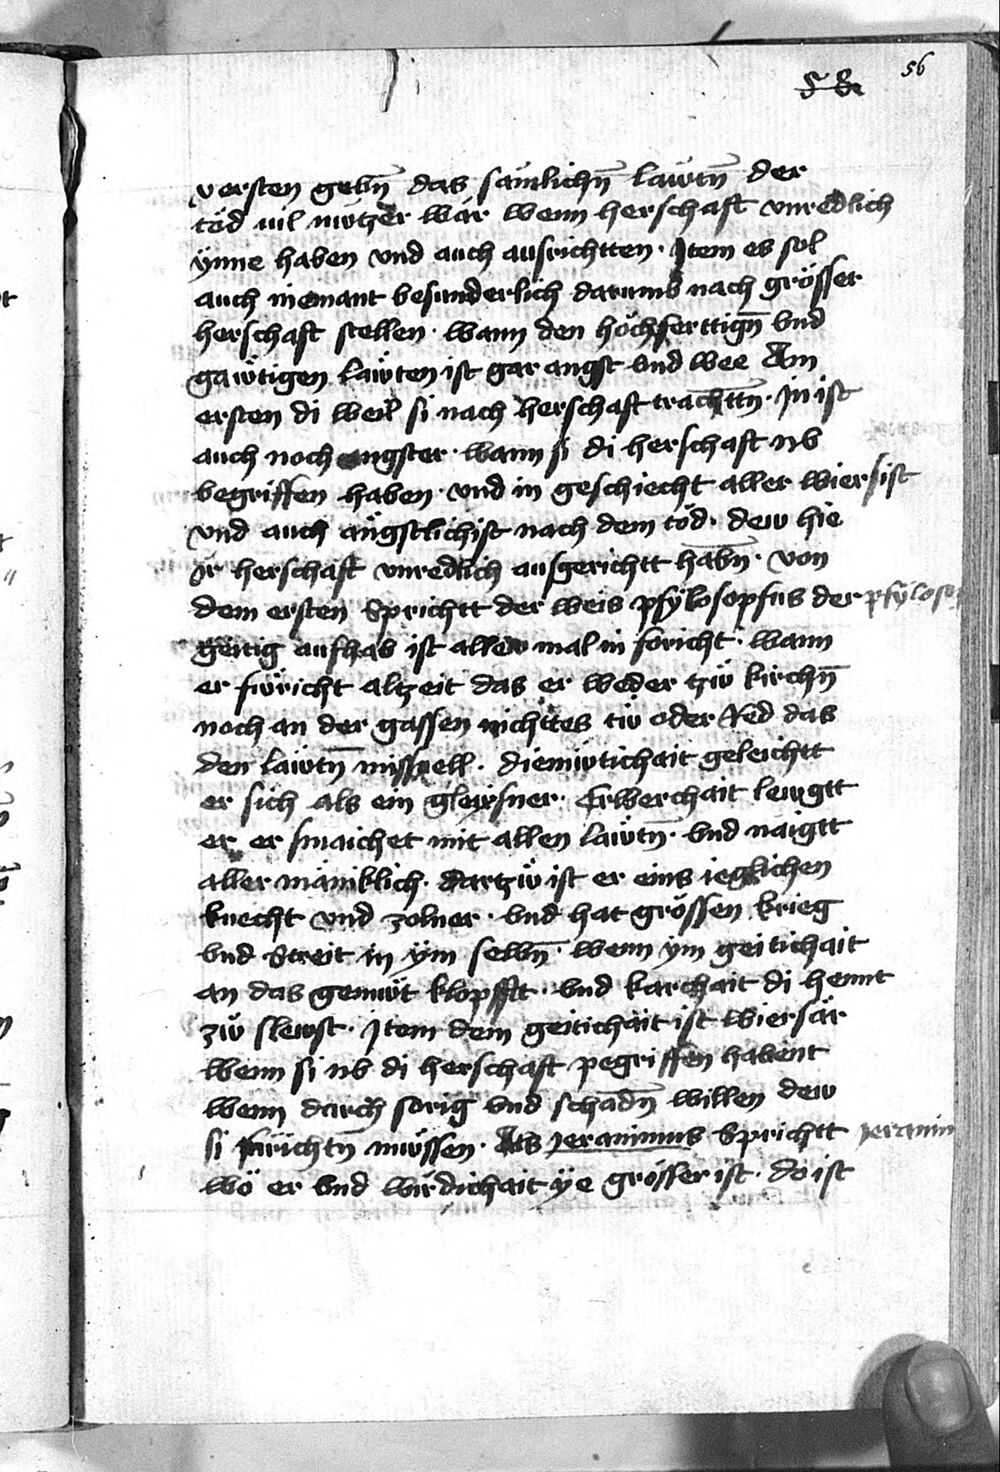 56
versten gebn̄ das sämlichn̄ läwtn̄ der
töd uil nützer wär wenn herschaft vnredlich
ynne haben vnd auch ausrichtten · Item es sol
auch niemant besunderlich darumb nach grösser
herschaft stellen · wann den höchferttign̄ vnd
gäwtigen läwten ist gar angst vnd wee Am
ersten di weil si nach herschaft trachttn̄ · In ist
auch noch angster · wann si di herschaft nv
begriffen haben · vnd in geschiecht aller wiersist
vnd auch ängstlichist nach dem töd · dew hie
ir herschaft vnredlich ausgerichtt habn̄ · von
dem ersten Sprichtt der weis pfylosopfus der pfyloso
geitig aufhab ist allew mal in foricht · wann
er füricht altzeit das er weder tzw kirchn̄
noch an der gassen nichttes tw oder Red das
den läwtn̄ missuell · diemwtichait geleichtt
er sich als ein gleyssner · Erwerchait lewgtt
er er smaichet mit allen läwtn̄ · vnd naigtt
aller mäniklich · dartzw ist er eins ieglichen
knecht vnd zolner · vnd hat grössen krieg
vnd Streit in ym selbn̄ · wenn ym geitichait
an das gemüt klopfft · vnd karchait di hennt
zw slewst · Item dem geitichait ist wiersär
wenn si nv di herschaft pegriffen habent
wenn durch sorig vnd schadn̄ willen dew
si fürichtn̄ müssen · Als Jeranimus Sprichtt Jeranim
wö er vnd wirdichait ye grösser ist · do ist